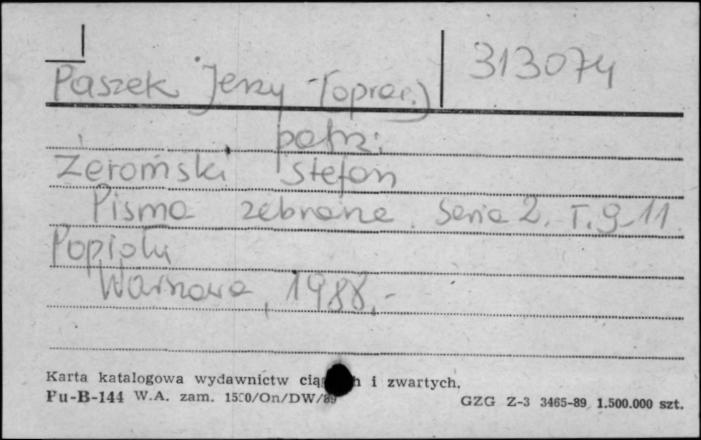 313074
Paszek Jerzy (oprac.)
patrz:
Żeromski Stefan
Pisma zebrane. Seria 2. T. 9-11
Popioły
Warszawa, 1988.-
Karta katalogowa wydawnictw i zwartych.
Pu-B-144 W.A. zam. 1500/On/DW/89 GZG Z-3 3465-89 1.500.000 szt.